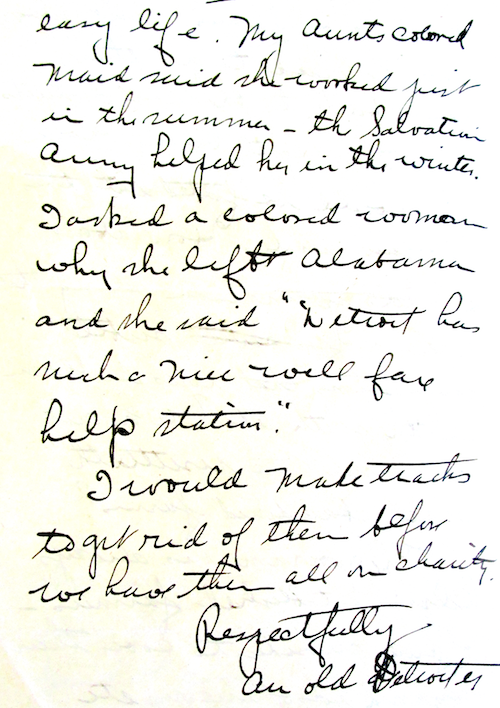 easy life. My Aunts colored
maid said she worked just
in the summer - th Salvation
Army helped her in the winter.
I asked a colored woman
why she left Alabama
and she said "Detroit has
such a nice well fare
help station".
I would make tracks
to get rid of them before
we have them all on charity.
Respectfully
An old Detroiter